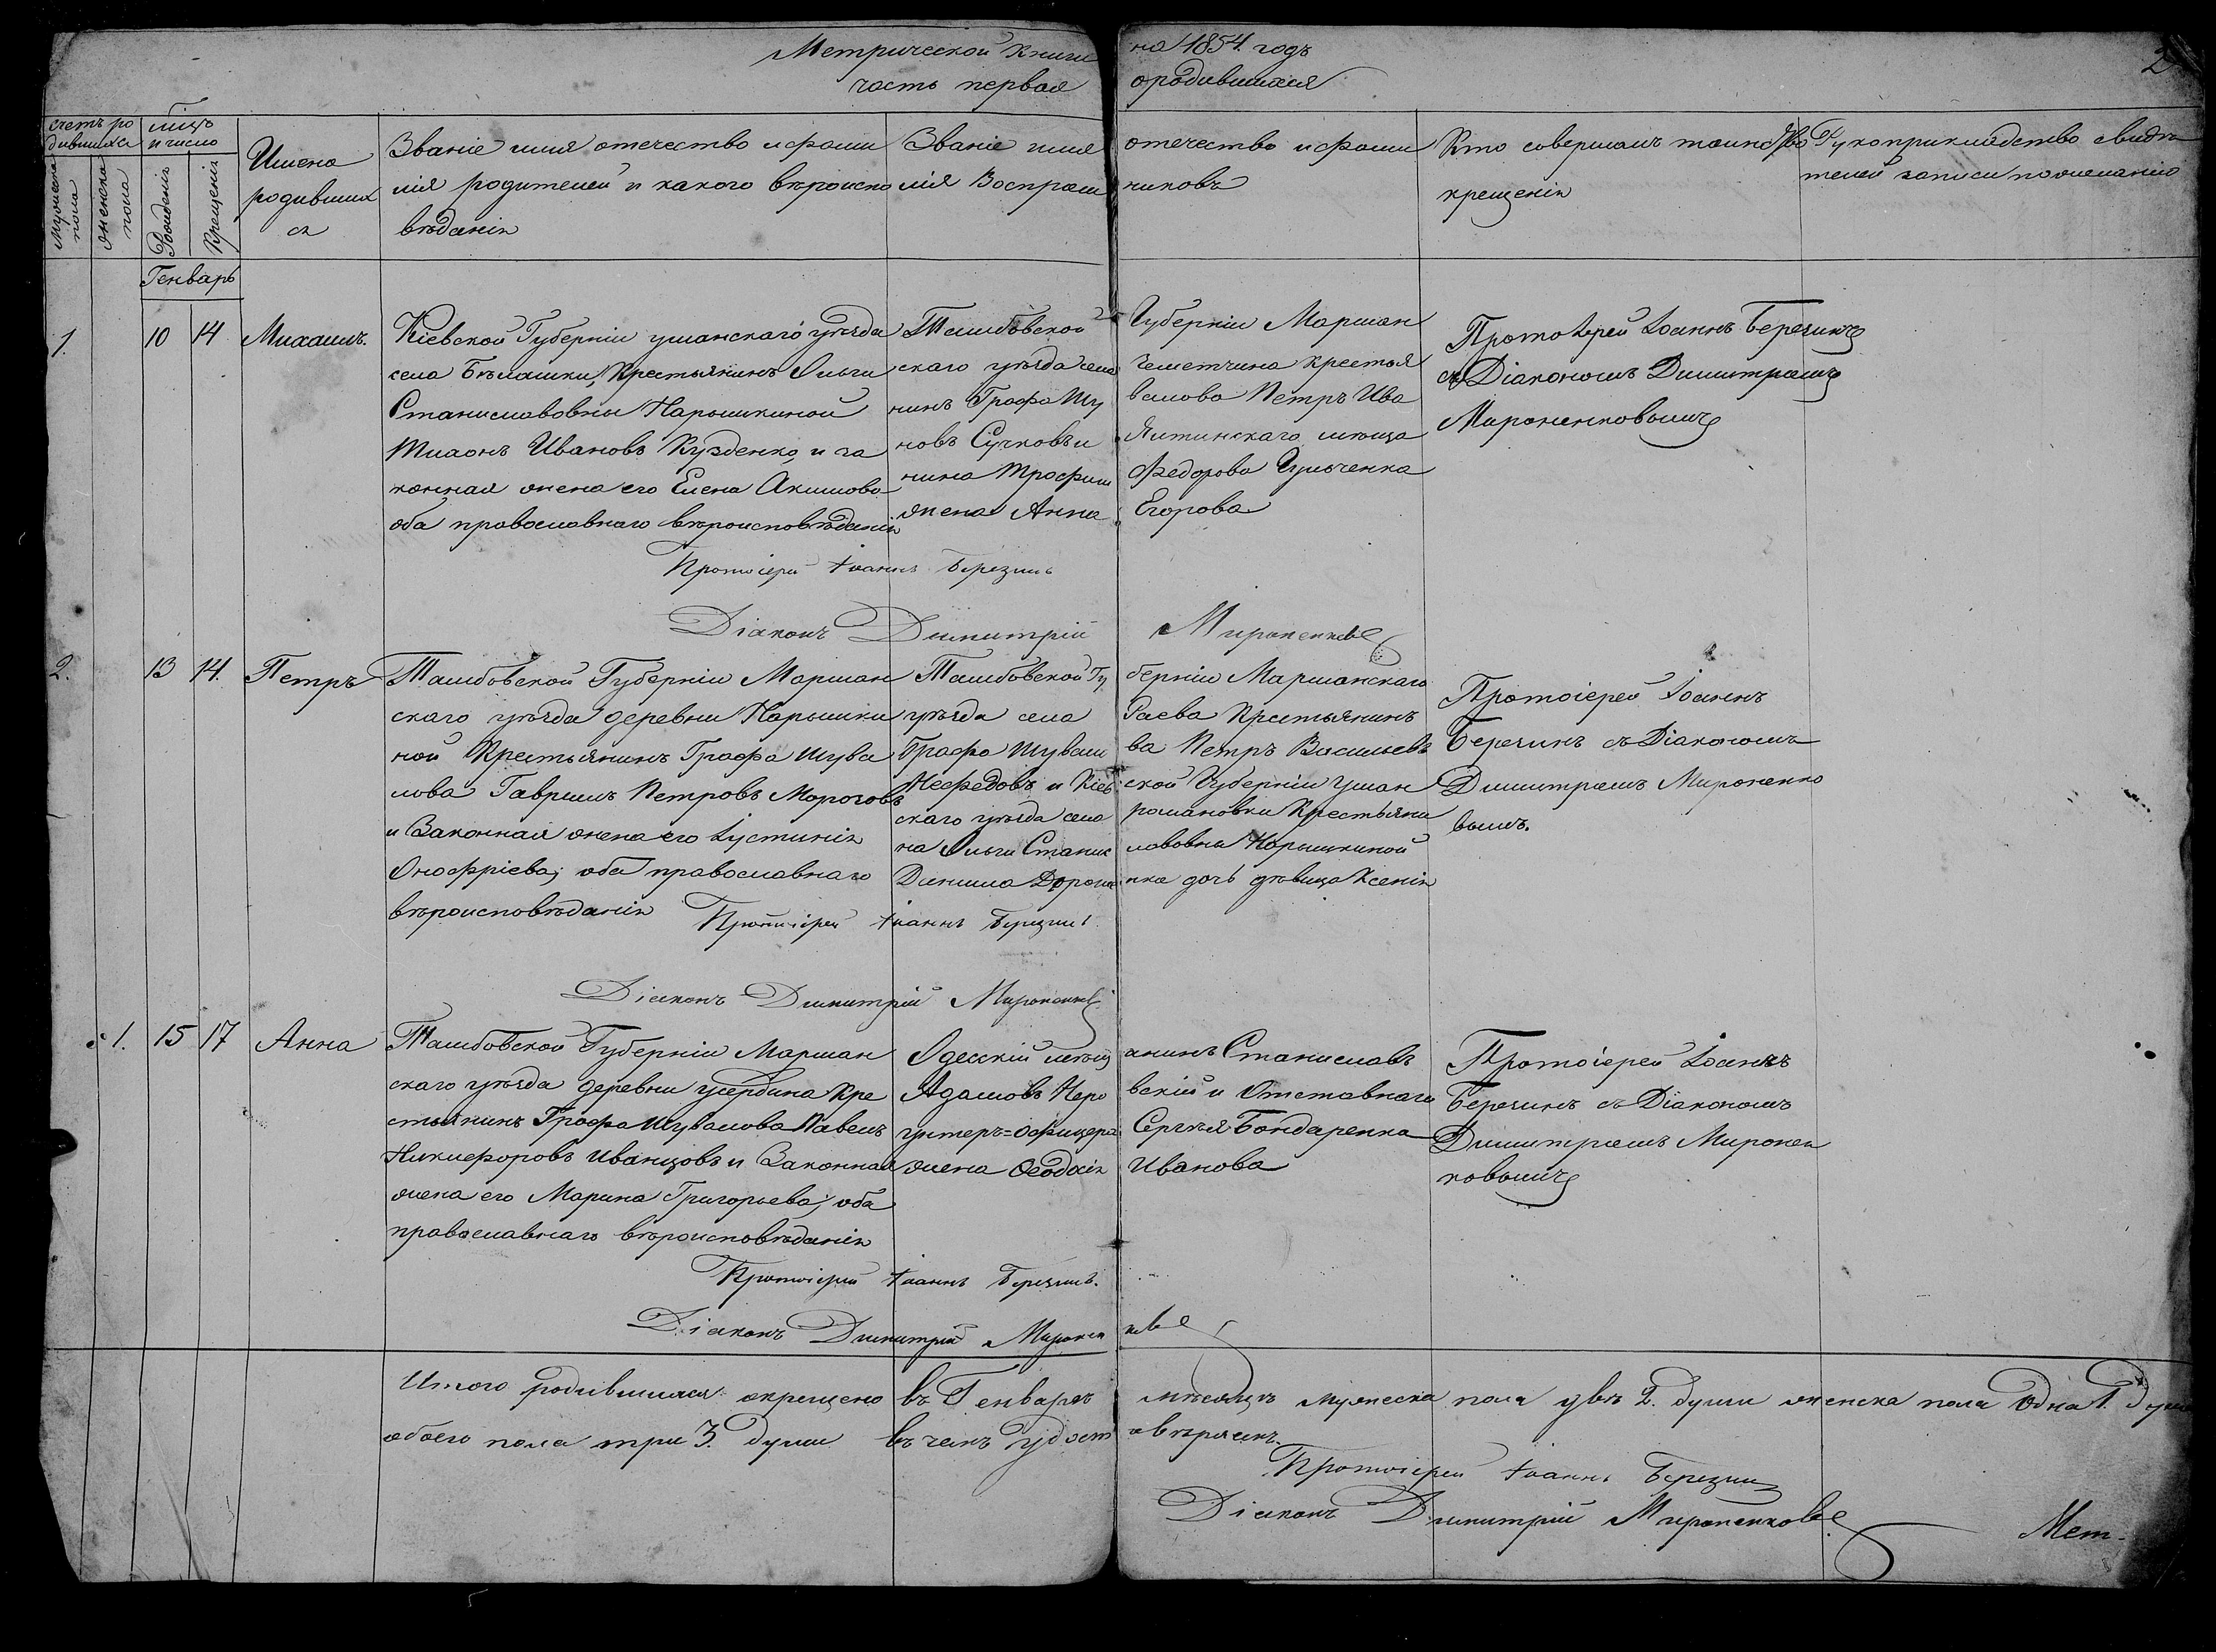 Метрической Книги на 1854. годъ
часть первая о родившихся
2
счетъ ро
дившихся
мцъ
и число
Мужеска
пола
женска
пола
Рожденія
Крещенія
Имена
родивших
ся
Званіе имя отечество и фами
лія родителей и какого вѣроиспо
вѣданія
Званіе имя отечество и фами
лія Воспріем никовъ
Кто совершалъ таинство
крещенія
Рукоприкладство свидѣ
телей записи по желанію
Генварь
1. 10 14 Михаилъ.
Кіевской Губерніи уманскаго уѣзда
села Бѣлашки, Крестьянинъ Ольги
Станиславовны Нарышкиной
Иванов Кузденко, и за
конная жена его Елена Акимова
оба православнаго вѣроисповѣданія
Тамбовской Губерніи Маршан
скаго уѣзда села Чеметчина крестья
нинъ Графа Шу валова Петръ Ива
новъ Сучковъ и Ялтинскаго мѣща
нина Трофим Федорова Гульченка
жена Анна Егорова
Протоіерей Іоаннъ Березинъ
съ Діакономъ Димитріемъ
Мироненковымъ
Протоіерей Іоаннъ Березинъ
Діаконъ Димитрій Мироненковъ
2. 13 14. Петръ
Тамбовской Губерніи Маршан
скаго уѣзда деревни Нарышки
ной Крестьянинъ Графа Шува
лова Гавріилъ Петровъ Морозовъ
и Законная жена его Іустинія
Онофріева; оба православнаго
вѣроисповѣданія
Тамбовской Гу берніи Маршанскаго
уѣзда села Раева Крестьянинъ
Графа Шувало ва Петръ Васильевъ
Нефедовъ и Кіев ской Губерніи Уман
скаго уѣзда села романовки Крестьяни
на Ольги Станис лавовны Нарышкиной
Данила Дороше нка дочь дѣвица Ксенія
Протоіерей Іоаннъ
Березинъ съ Діакономъ
Димитріемъ Мироненко
вымъ.
Протоіерей Іоаннъ Березинъ
Діаконъ Димитрій Мироненковъ
1. 15 17 Анна
Тамбовской Губерніи Маршан
скаго уѣзда деревни усердина Кре
стьянинъ Графа Шувалова Павелъ
Никифоровъ Иванцовъ и Законная
жена его Марина Григорьева; оба
православнаго вѣроисповѣданія
Одесскій мѣщ анинъ Станиславъ
Адамовъ Неро вскій и Отставнаго
унтеръ=офицера Сергѣя Бондаренка
жена Ѳеодосія Иванова
Протоіерей Іоаннъ
Березинъ съ Діакономъ
Димитріемъ Миронен
ковымъ
Протоіерей Іоаннъ Березинъ.
Діаконъ Димитрій Миронен ковъ
Итого родившихся окрещено въ Генварѣ мѣсяцѣ мужеска пола двѣ 2. души женска пола Одна 1. душа
обоего пола три 3. души въ чемъ удост овѣряемъ.
Протоіерей Іоаннъ Березинъ
Діаконъ Димитрій Мироненковъ
Мет-